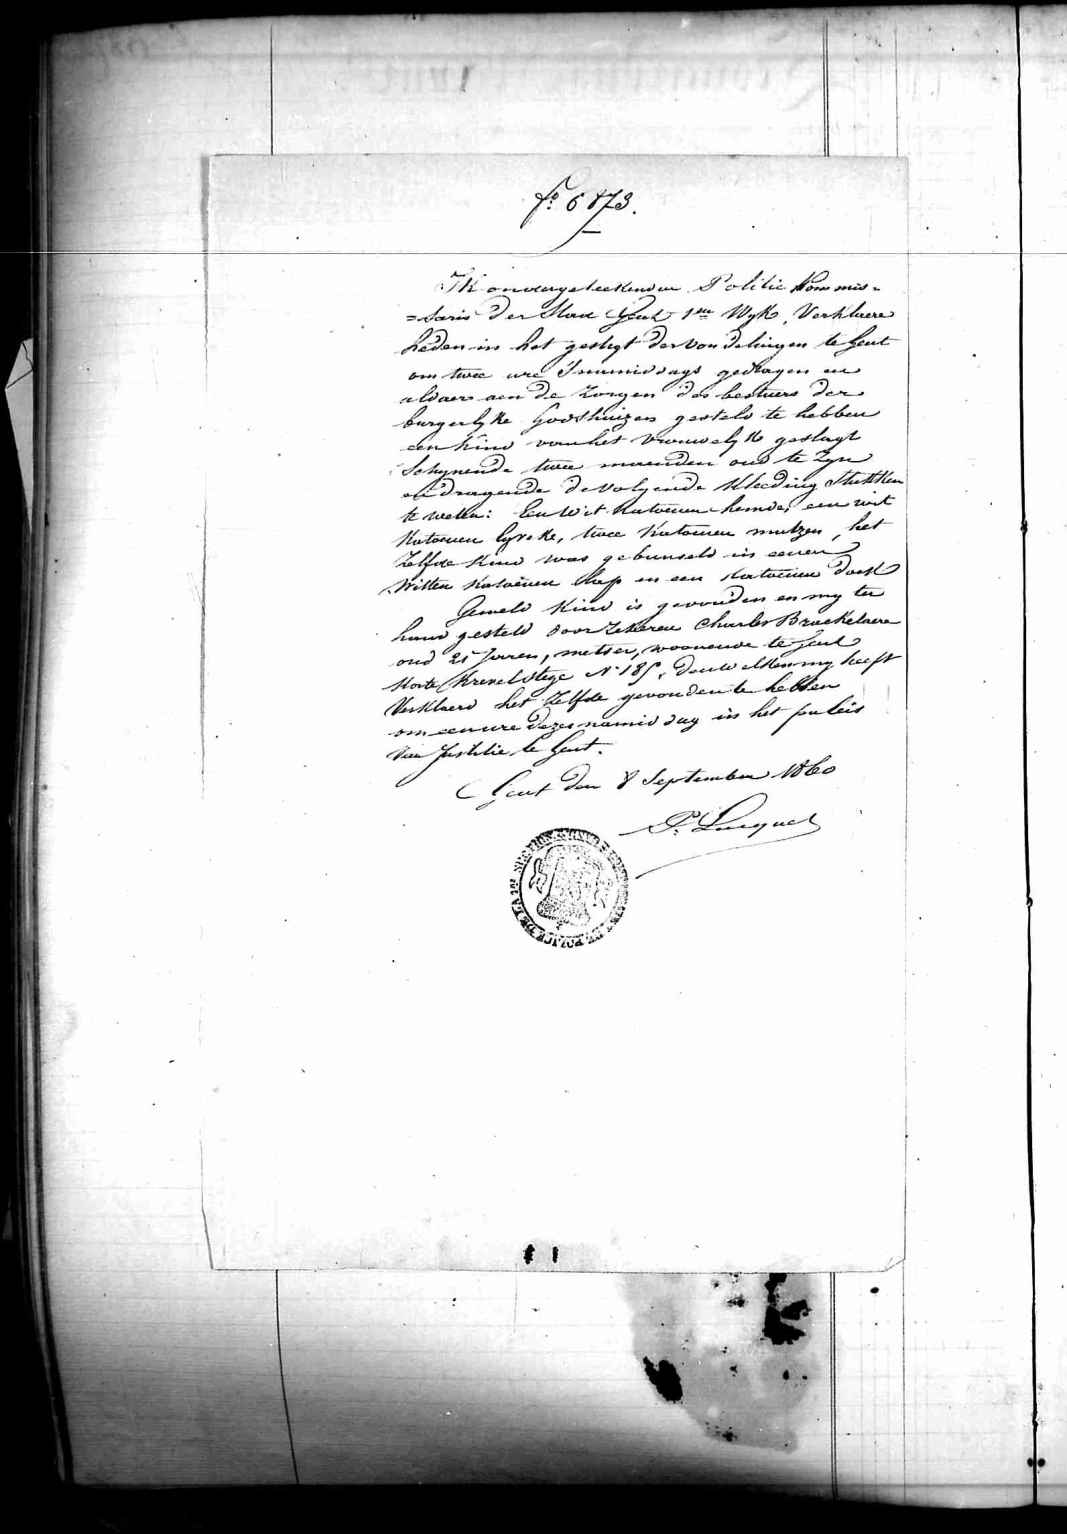 f° 6873.
Ik ondergeteekenden Politie kommis-
=saris der Stad Gend 1en Wyk, Verklaere
heden in het gestigt der vondelingen te Gent
om twee ure s'namiddags gedragen en
aldaer aen de zorgen des bestuers der
burgerlyke Godshuizen gesteld te hebben
een kind van het vrouwelyk geslagt
Schynende twee maenden oud te zyn
en dragende de volgende kleeding stukken
te weten: Een wit katoenen hemde, een wit
katoenen lyveke, twee katoenen mutzen, het
zelfde kind was gebunseld in eenen
witten katoenen lap en een katoenen doek
Gemeld kind is gevonden en my ter
hand gesteld door zekeren Charles Braekelaere
oud 21 Jaren, metser, woonende te Gend
korte Krevelstege N° 185, denwelken my heeft
Verklaerd het zelfde gevonden te hebben
om een ure dezes namiddag in het paleis
van Justitie te Gent.
Gent den 8 September 1860
P. Lucquet
POLICE DE LA 1RE SECTION